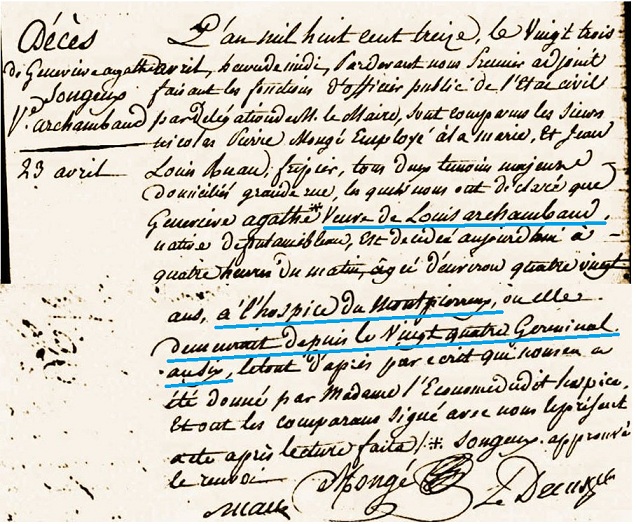 Décès
de Geneviève agathe
Songeux
Ve. archambaud
23 avril
L'an mil huit cent treize, le Vingt trois
avril, heure de midi, Pardevant nous Premier adjoint
faisant les fonctions d'officier public de l'Etat civil
par Délégation de M. le Maire, sont comparus les Sieurs
nicolas Pierre Mongé Employé à la marie, Et Jean
Louis Ruau, fripier, tous deux temoins majeurs
domiciliés grande rue, les quels nous ont déclaré que
Geneviève agathe * Veuve de Louis archambaud,
native de fontainebleau, Est décédée aujourd'hui à
quatre heures du matin, âgée d'environ quatre vingt
ans, à l'hospice du Montpierreux, ou elle
demeurait depuis le Vingt quatre Germinal
an dix, le tout d'après par ecrit qui nous en a
été donné par Madame l'Econome dudit hospice,
Et ont les comparans signé avec nous le présent
acte après lecture faite /. * Songeux. approuvé
le renvoi
Mongé